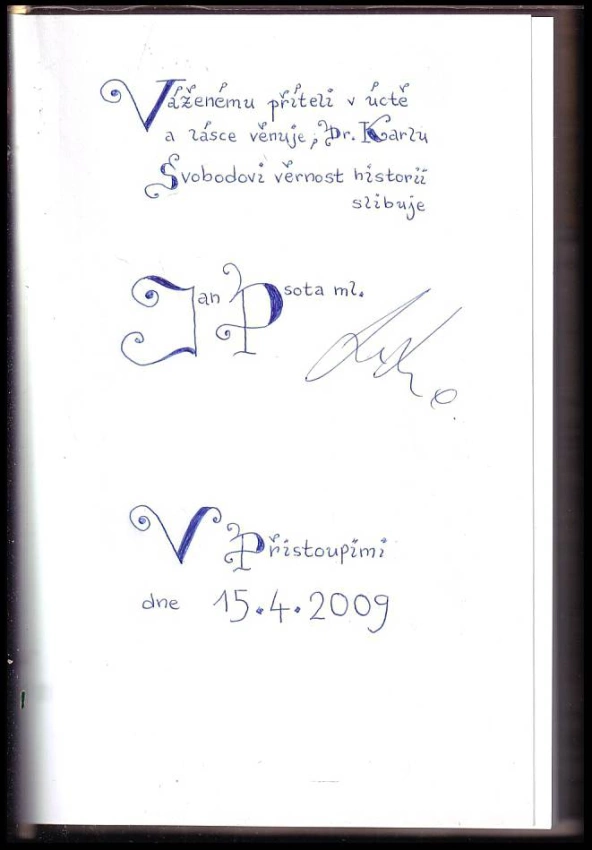 Váženému příteli v úctě
a lásce věnuje, Dr. Karlu
Svobodovi věrnost historii
slibuje
Jan Psota ml.
V Přistoupimi
dne 15.4.2009